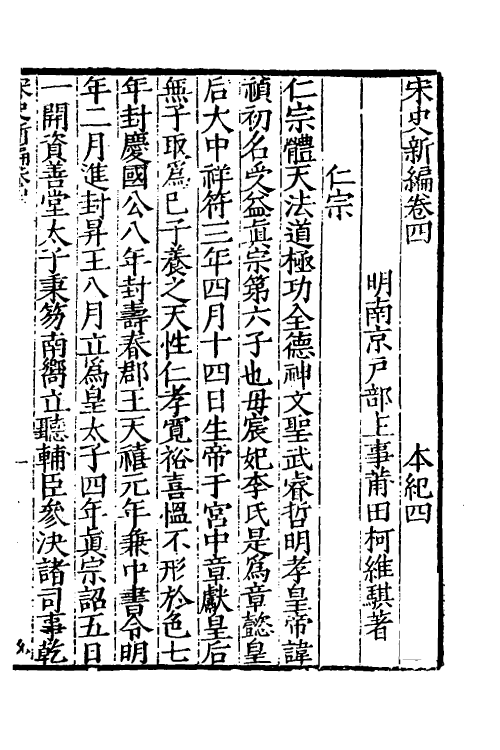 宋史新編卷四　本紀四
明南京戶部主事莆田柯維騏著
仁宗
仁宗體天法道極功全德神文聖武睿哲明孝皇帝諱
禎初名受益眞宗第六子也毋宸妃李氏是爲章懿皇
后大中祥符三年四月十四日生帝于宮中章獻皇后
無子取爲已子養之天性仁孝寬裕喜慍不形於色七
年封慶國公八年封壽春郡王天禧元年兼中書令明
年二月進封昇王八月立爲皇太子四年眞宗詔五日
一開資善堂太子秉笏南嚮立聽輔臣參決諸司事乾
宋史新編卷四
一